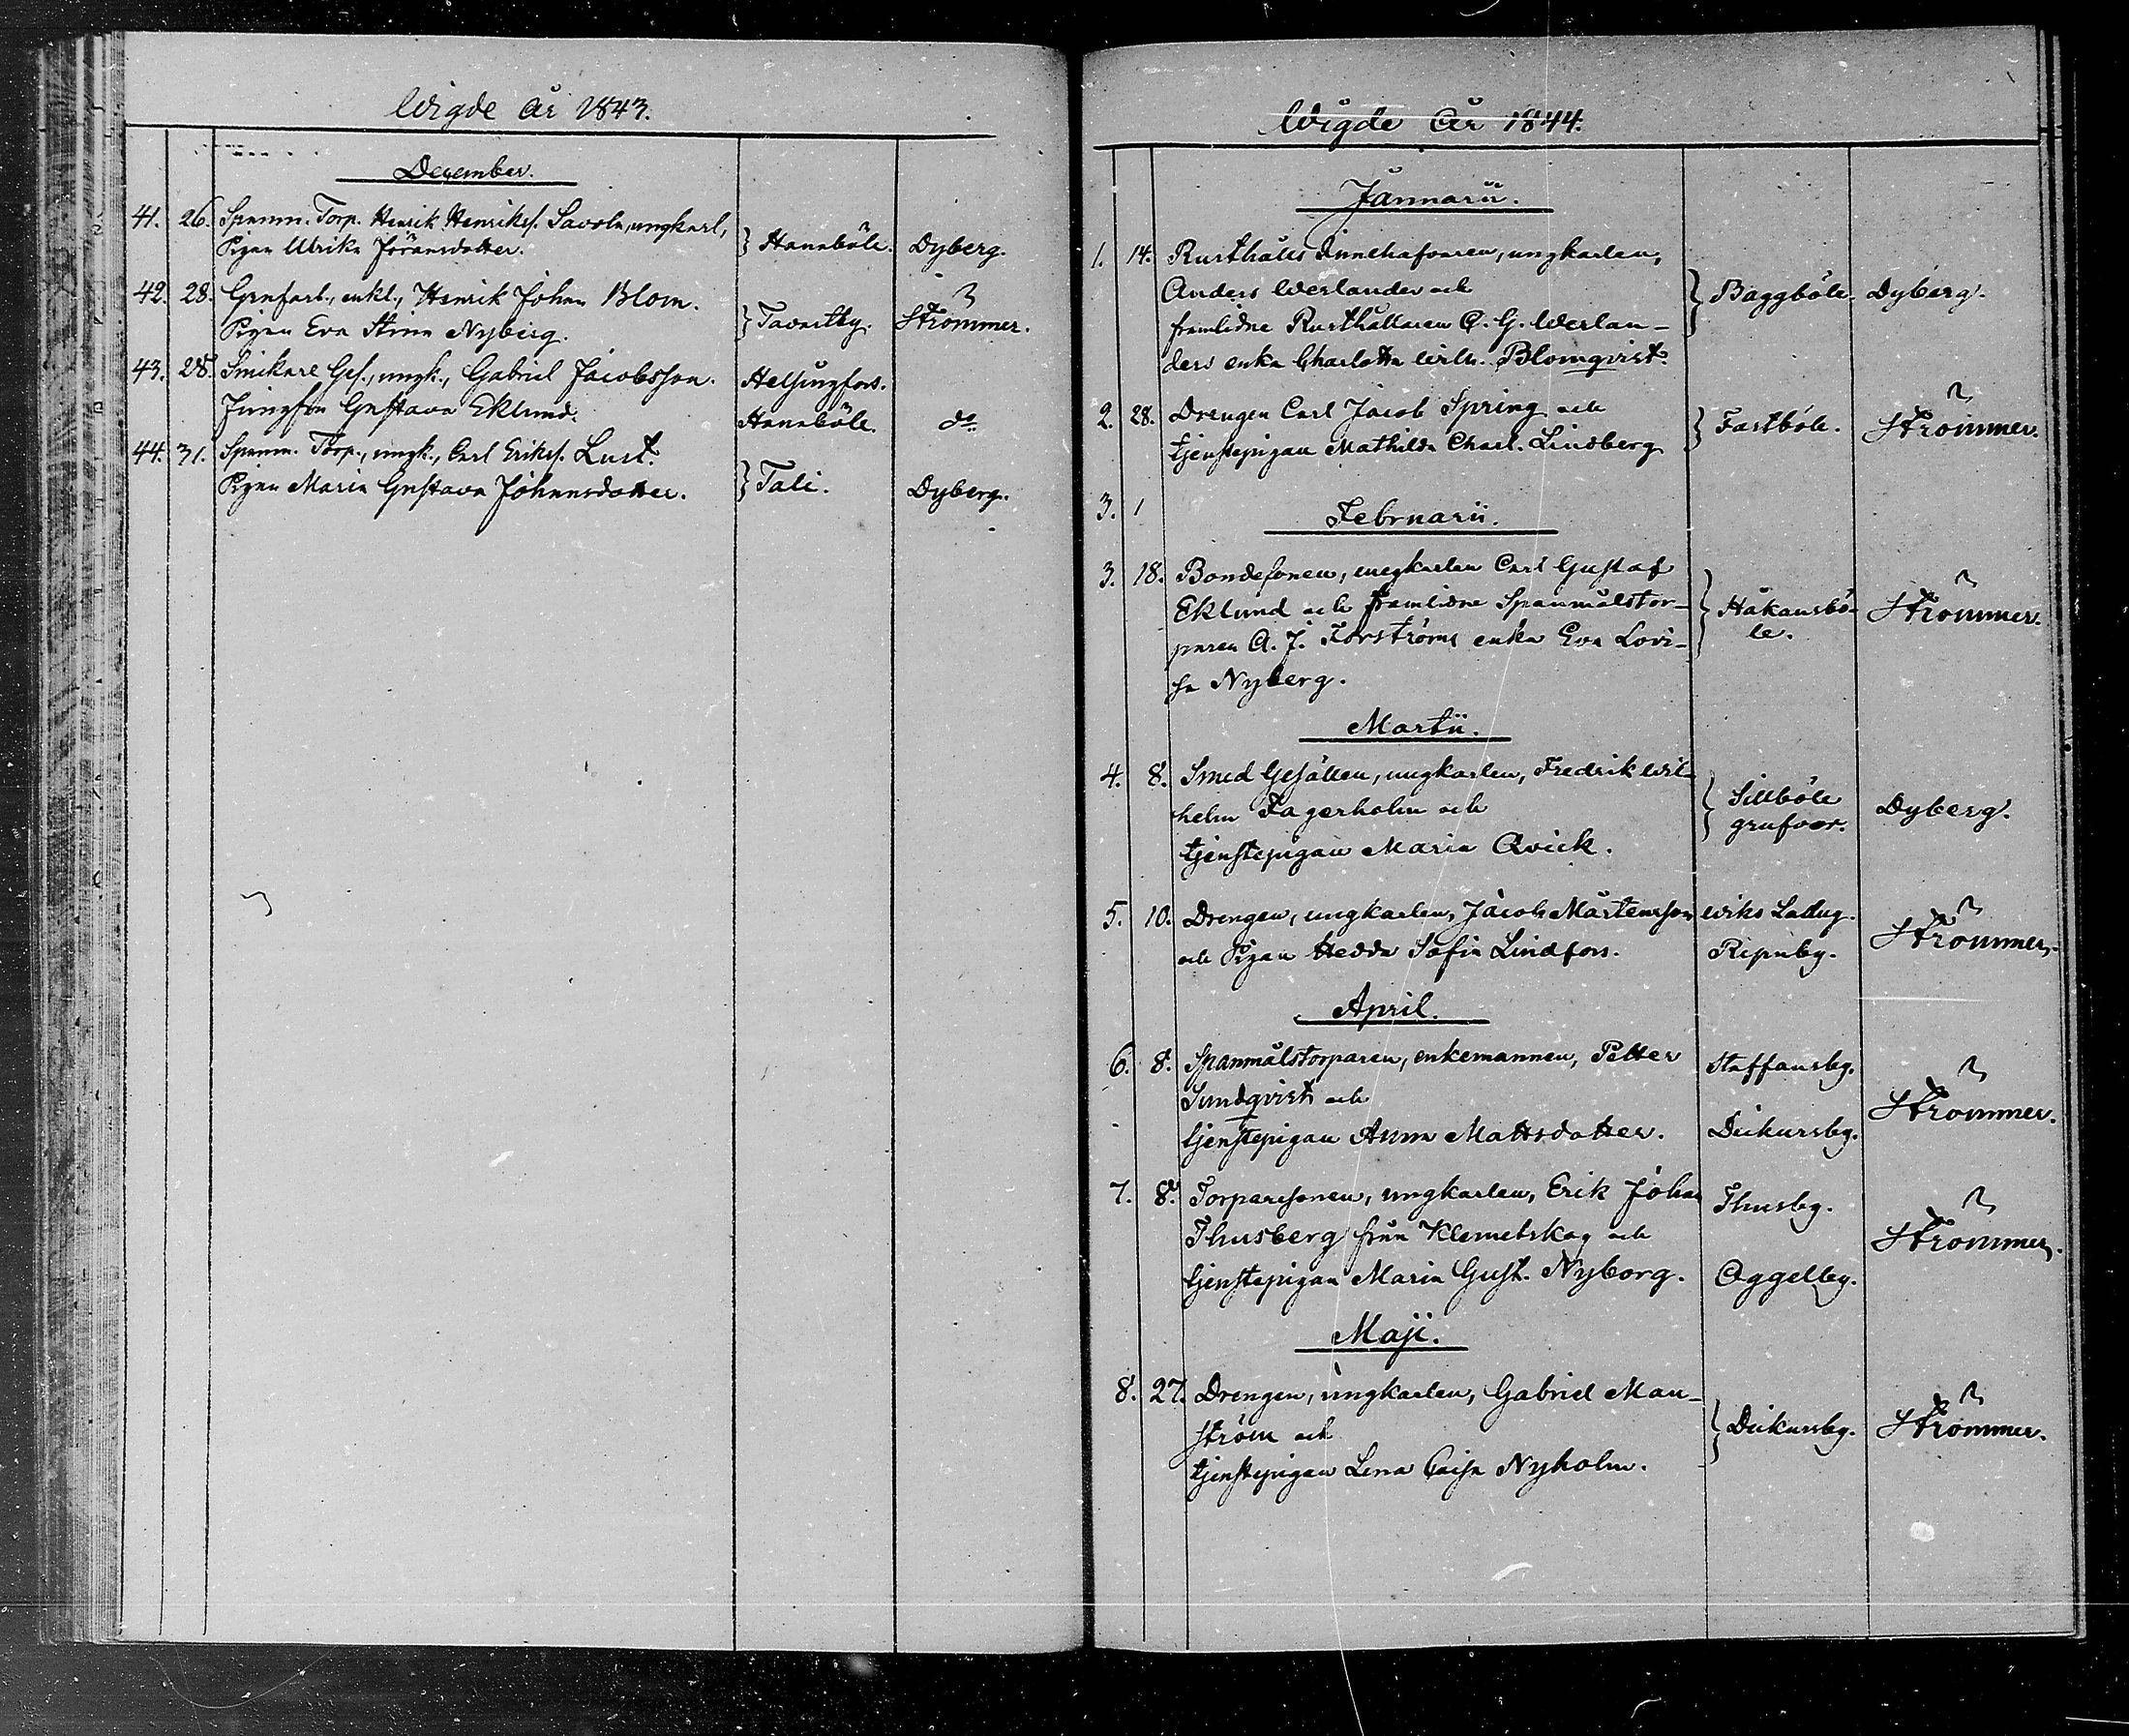 Wigde År 1843.
December.
41. 26. Spanm. Torp. Henrik Henrikss. Savola, ungkarl, } Hanaböle. Dyberg.
Pigan Ulrika Jöransdotter.
42. 28. Grufarb., enkl., Henrik Johan Blom. } Tavastby. Strömmer.
Pigan Eva Stina Nyberg.
43. 28. Snikare Ges., ungk., Gabriel Jacobsson. Helsingfors.
Jungfru Gustava Eklund. Hanaböle. do.
44. 31. Spanm. Torp., ungk., Carl Erikss. Lust. } Tali. Dyberg.
Pigan Maria Gustava Johansdotter.
Wigde År 1844.
Januarii.
1. 14. Rusthålls Innehafvaren, ungkarlen,
Anders Werlander och } Baggböle. Dyberg.
framlidne Rusthållaren C. G. Werlan-
ders enka Charlotta Wilh. Blomqvist.
2. 28. Drengen Carl Jacob Spring och } Fastböle. Strömmer.
tjenstepigan Mathilda Charl. Lindberg
3. 1
Februarii.
3. 18. Bondesonen, ungkarlen Carl Gustaf
Eklund och framlidne Spanmålstor- } Håkansbö- Strömmer.
paren A. J. Forströms enka Eva Lovi- le.
sa Nyberg.
Martii.
4. 8. Smed Gesällen, ungkarlen, Fredrik Wil-
helm Fagerholm och } Sillböle grufvor. Dyberg.
tjenstepigan Maria Qvick.
5. 10. Drengen, ungkarlen, Jacob Mårtensson Wiks Ladug. Strömmer.
och Pigan Hedda Sofia Lindfors. Ripuby.
April.
6. 8. Spanmålstorparen, enkemannen, Petter Staffansby. Strömmer.
Sundqvist och
tjenstepigan Anna Mattsdotter. Dickursby.
7. 8. Torparesonen, ungkarlen, Erik Johan Thusby. Strömmer.
Thusberg från Klemetskog och
tjenstepigan Maria Gust. Nyborg. Åggelby.
Maji.
8. 27. Drengen, ungkarlen, Gabriel Man-
ström och } Dickursby. Strömmer.
tjenstepigan Lena Caisa Nyholm.